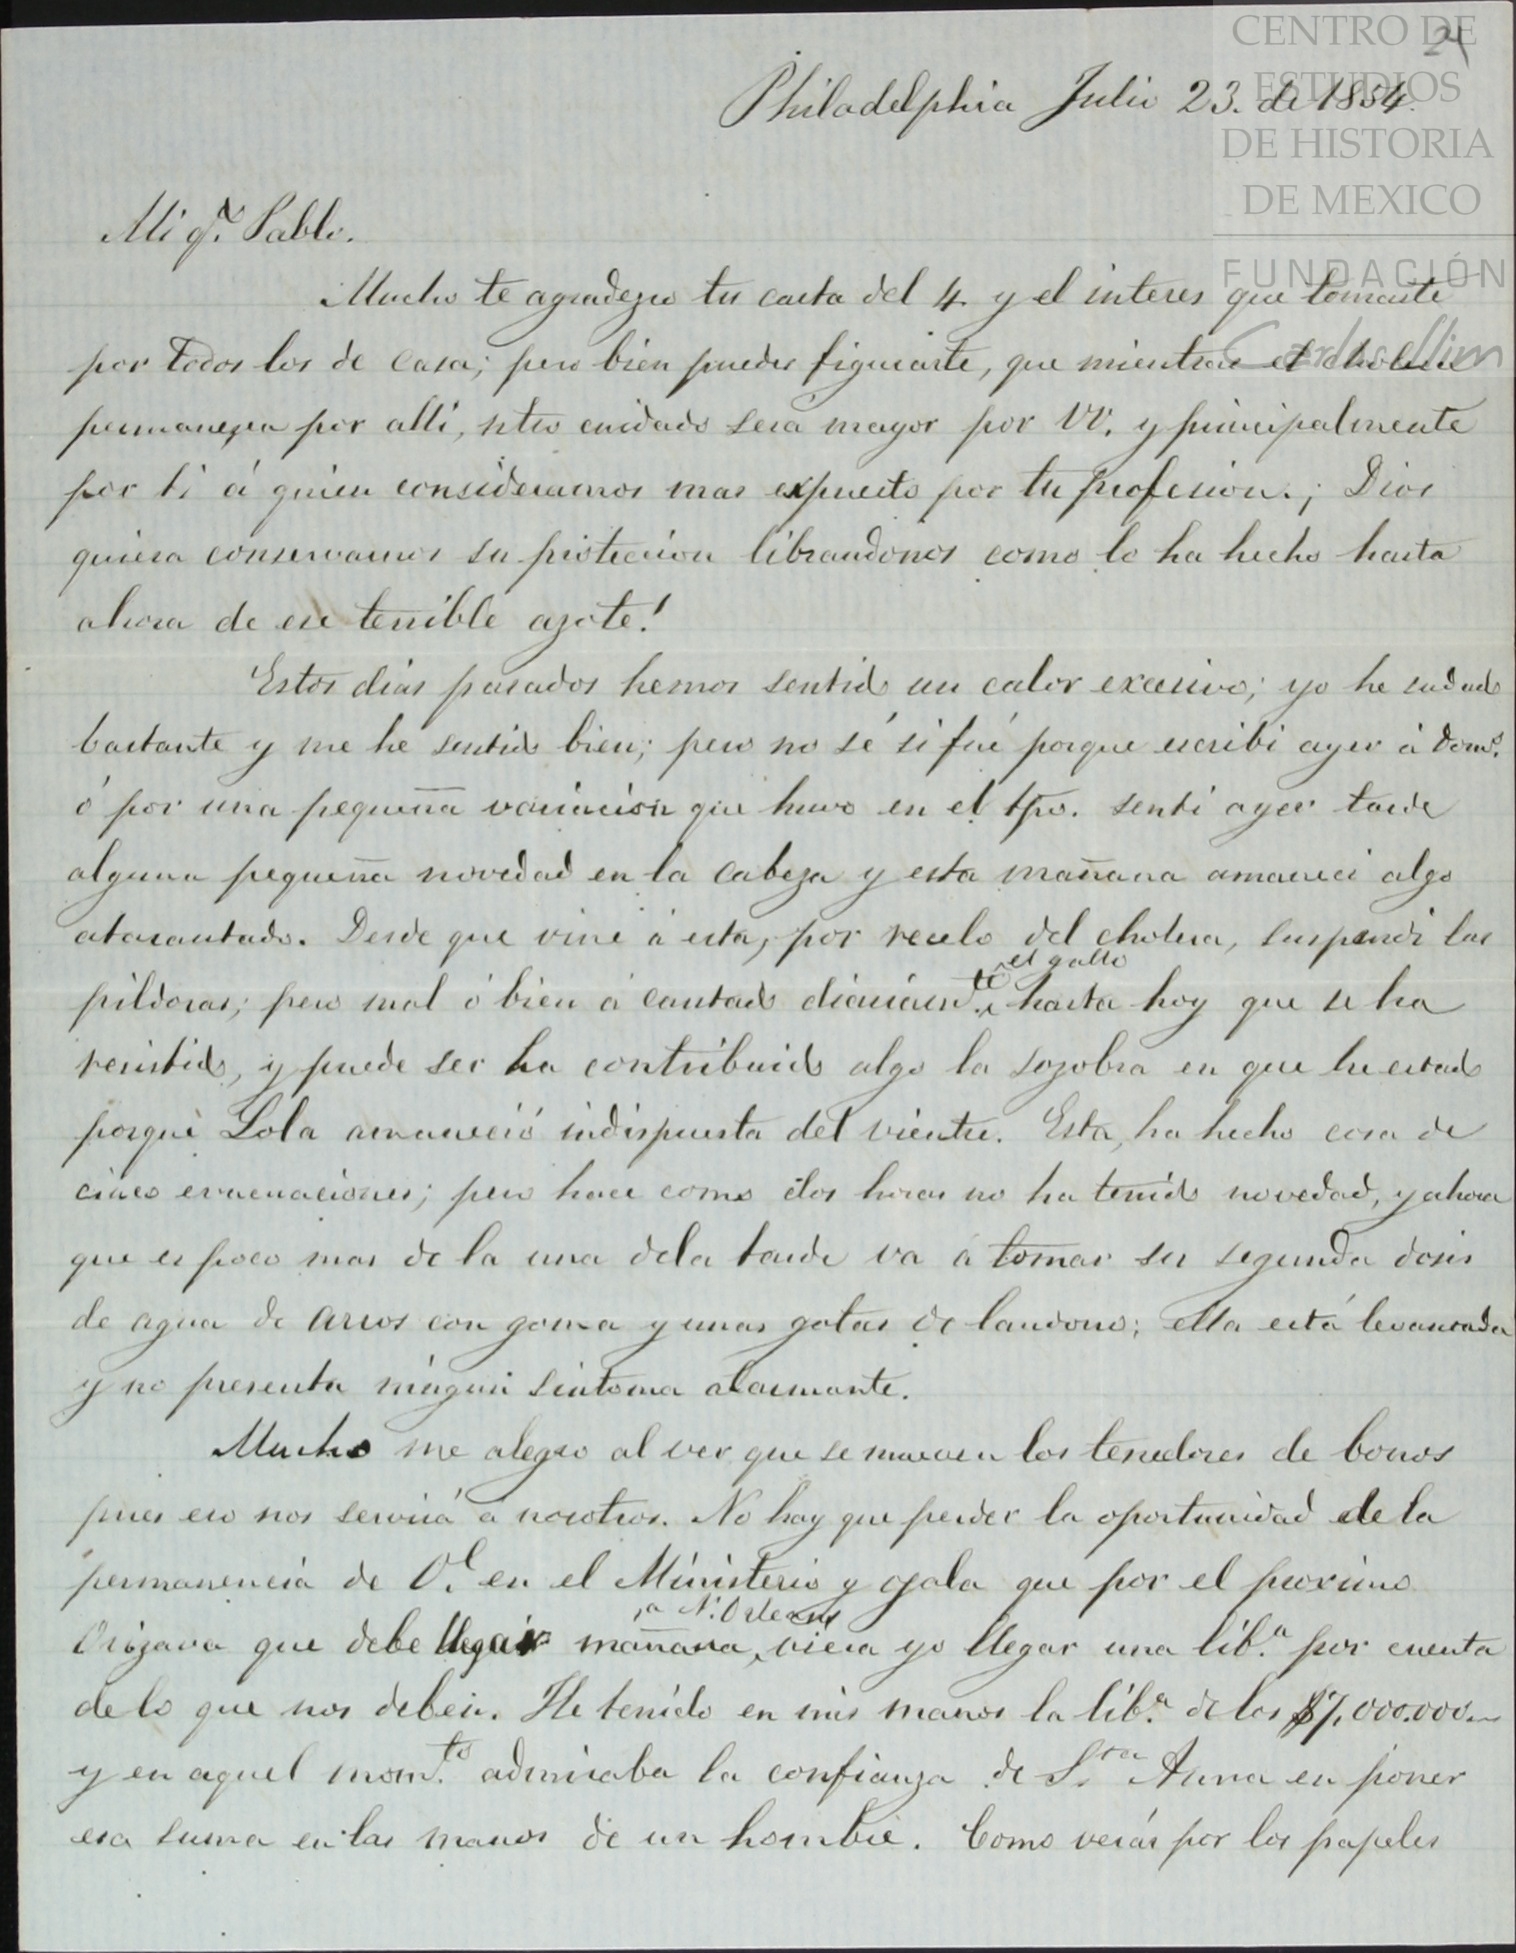 CENTRO DE
ESTUDIOS
DE HISTORIA
DE MEXICO
FUNDACIÓN
Carlos Slim
24
Philadelphia Julio 23. de 1854.
Mi q.º Pablo.
Mucho te agradezco tu carta del 4. y el interes que tomaste
por todos los de casa; pero bien puedes figurarte, que mientras el cholera
permanezca por allí, ntro cuidado será mayor por VV. y principalmente
por ti á quien consideramos mas expuesto por tu profesion.; Dios
quiera conservarnos su proteccion librandonos como lo ha hecho hasta
ahora de ese terrible azote!
Estos dias pasados hemos sentido un calor excesivo; yo he sudado
bastante y me he sentido bien; pero no sé si fué porque escribi ayer á Dom.º
ó por una pequeña variacion que huvo en el tpo. senti ayer tarde
alguna pequeña novedad en la cabeza y esta mañana amaneci algo
atarantado. Desde que vine á esta, por recelo del cholera, suspendi las
pildoras; pero mal ó bien á cantado diariam.te el gallo hasta hoy que se ha
resistido, y puede ser ha contribuido algo la sozobra en que he estado
porque Lola amaneció indispuesta del vientre. Esta, ha hecho cosa de
cinco evacuaciones; pero hace como dos horas no ha tenido novedad, y ahora
que es poco mas de la una dela tarde va á tomar su segunda dosis
de agua de arros con goma y unas gotas de laudono; ella está levantada
y no presenta ningun sintoma alarmante.
Mucho me alegro al ver que se mueven los tenedores de bonos
pues eso nos servirá á nosotros. No hay que perder la oportunidad de la
permanencia de O.l en el Ministerio y ojala que por el proximo
Orizava que debe llegar mañana, á N. Orleans viera yo llegar una lib.ª por cuenta
de lo que nos deben. He tenido en mis manos la lib.ª de los $7,000.000
y en aquel mom.to admiraba la confianza de S.ta Anna en poner
esa suma en las manos de un hombre. Como verás por los papeles